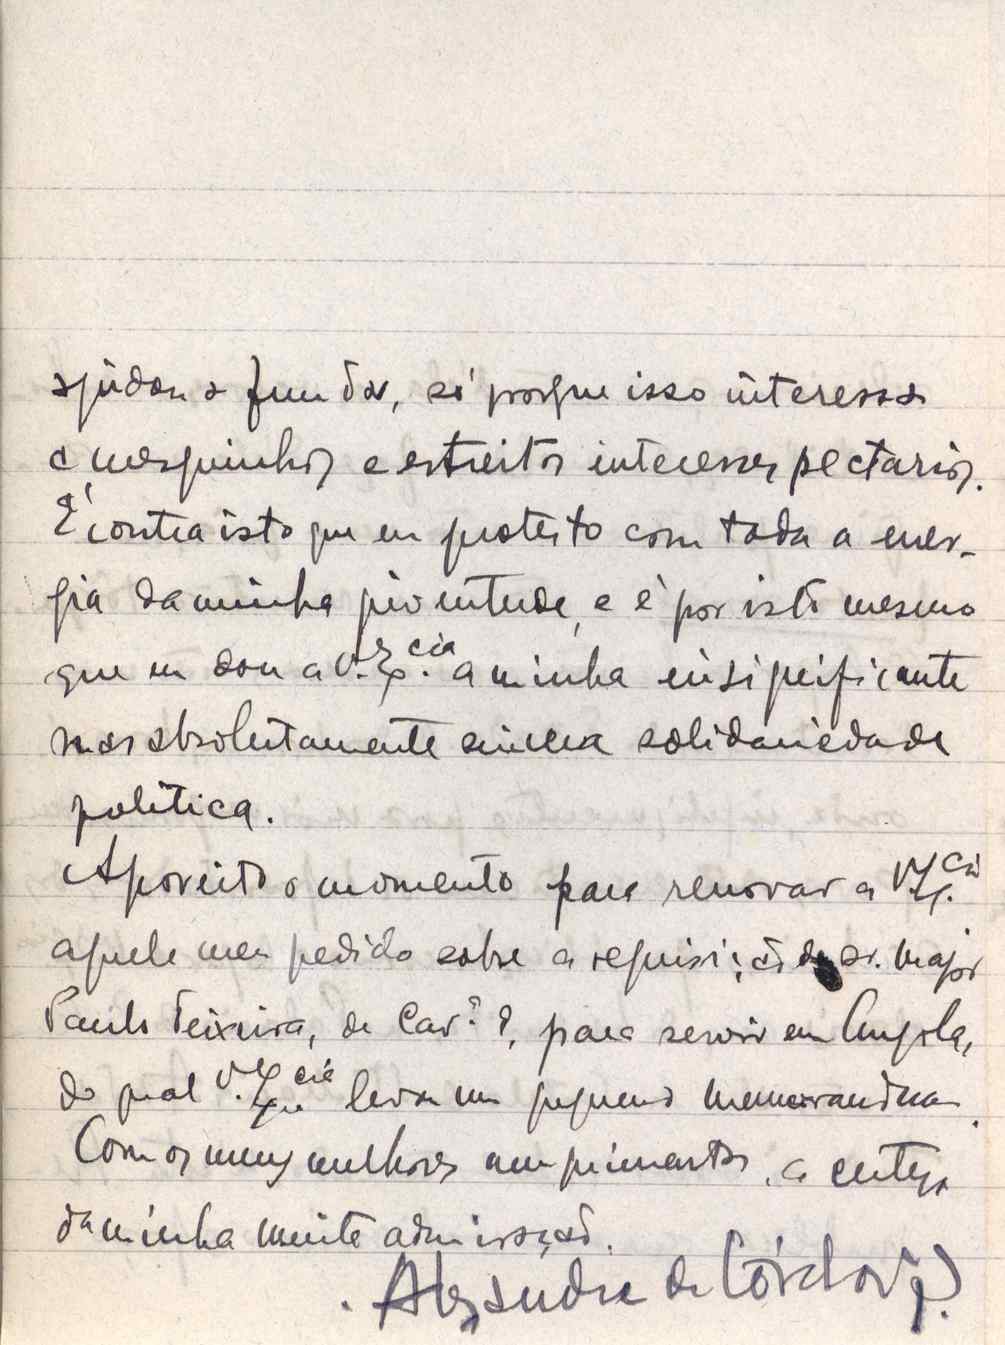 ajudou a fundar, só porque isso interessa
a mesquinhos e estreitos interesses sectarios.
É contra isto que eu protesto com toda a ener-
gia da minha juventude, e é por isto mesmo
que eu dou a V. Ex.cia a minha insignificante
mas absolutamente sincera solidariedade
politica.
Aproveito o momento para renovar a V. Ex.cia
aquele meu pedido sobre a requisição do sr. major
Paulo Teixeira, de Cav.ª 8, para servir em Angola,
do qual V. Ex.cia levou um pequeno memorandum.
Com os meus melhores cumprimentos, a certeza
da minha muita admiração.
Alexandre de Córdova